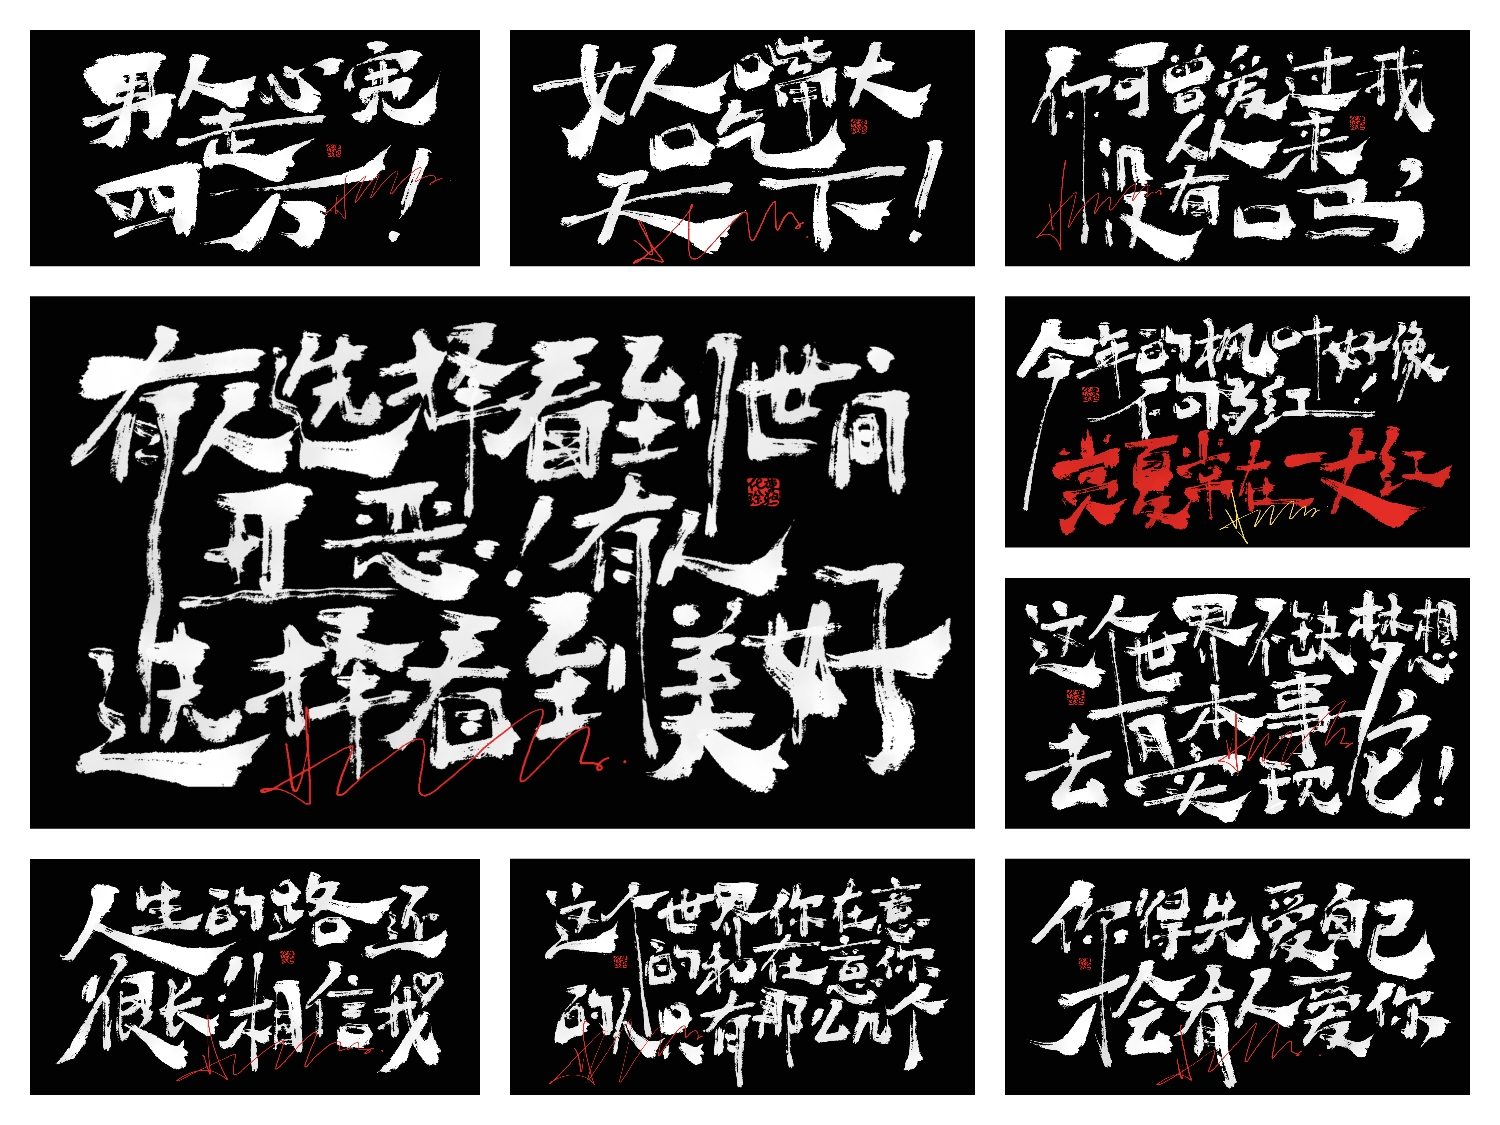 男人心宽
走
四方！
女人嘴大
吃
天下！
你可曾爱过我
从来
没有吗，
有人选择看到世间
丑恶！有人
选择看到美好
今年的枫叶好像
不够红！
赏夏常在一丈红
这个世界不缺梦想
有本事
去实现它！
人生的路还
很长！相信我
这个世界你在意
的和在意你
的人只有那么几个
你得先爱自己
才会有人爱你